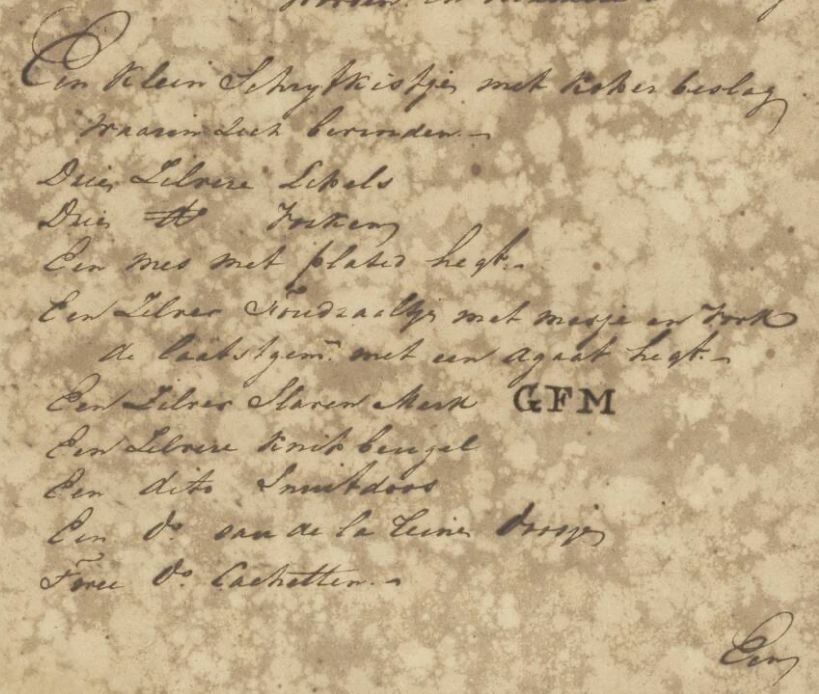 Een Klein Schryfkistje met koper beslag
waarin zich bevinden.
Drie Zilvere Lepels
Drie do Vorken
Een mes met plated hegt.
Een Zilver Foudraaltje met mesje en vork
de laatstgem. met een agaat hegt.
Een Zilver Slaven Merk GFM
Een Zilvere Knip beugel
Een dito Snuifdoos
Een do. eau de la Reine doosje
Twee do. Cachetten.
Een